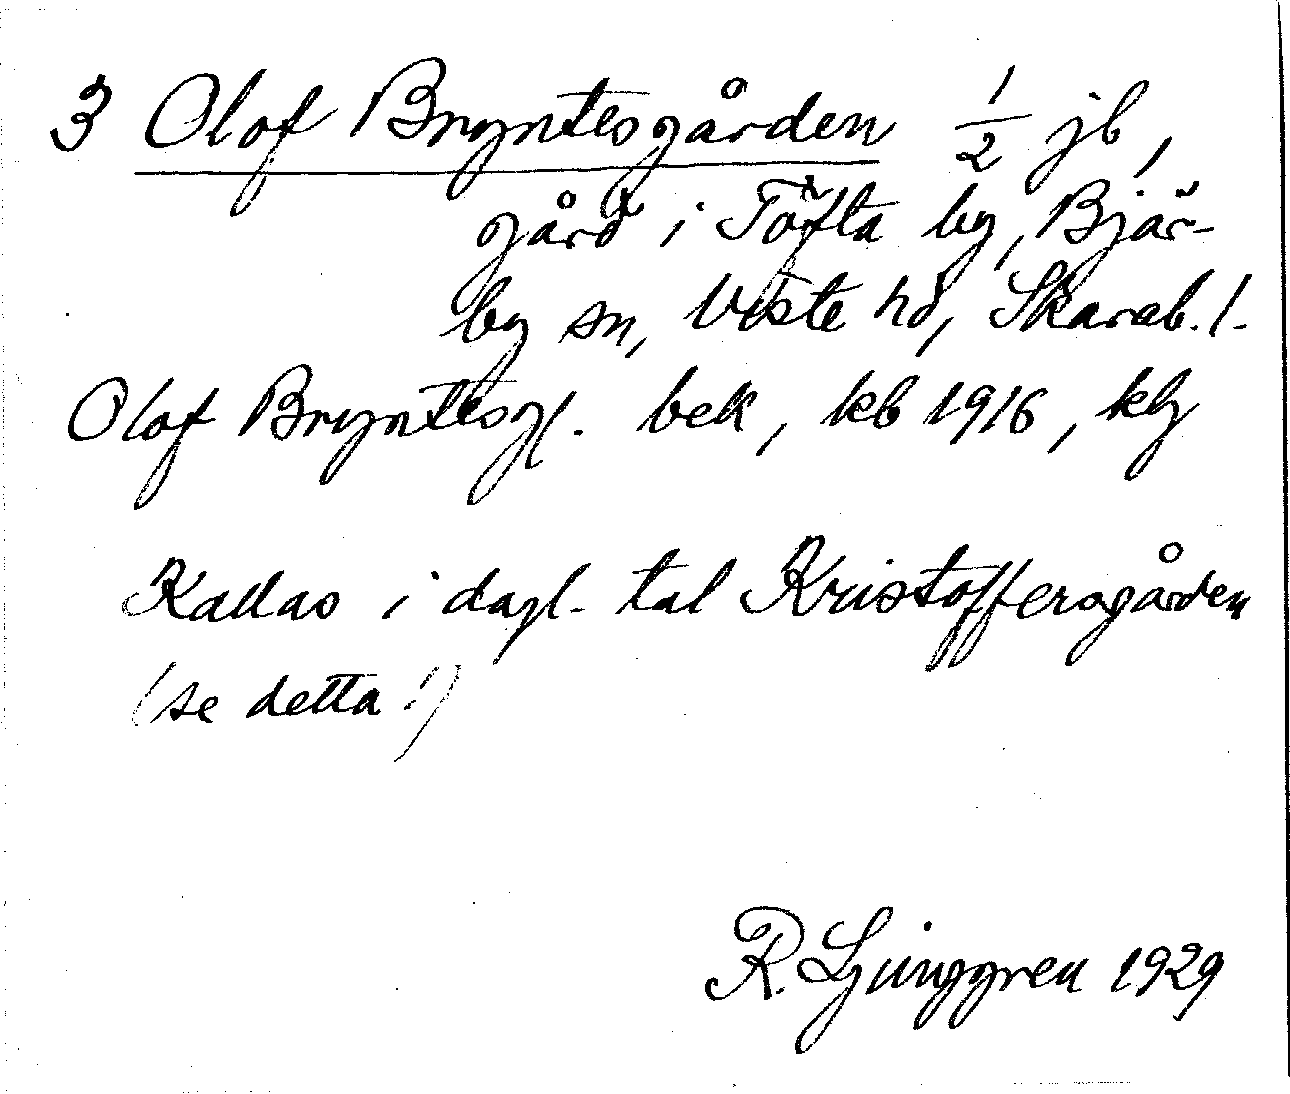 3 Olof Bryntesgården 1/2 jb,
gård i Töfta by, Bjär-
by sn, Viste hd, Skarab. l.
Olof Bryntesg. bek, kb 1916, kg
Kallas i dagl. tal Kristoffersgården
(se detta!)
R. Ljunggren 1929